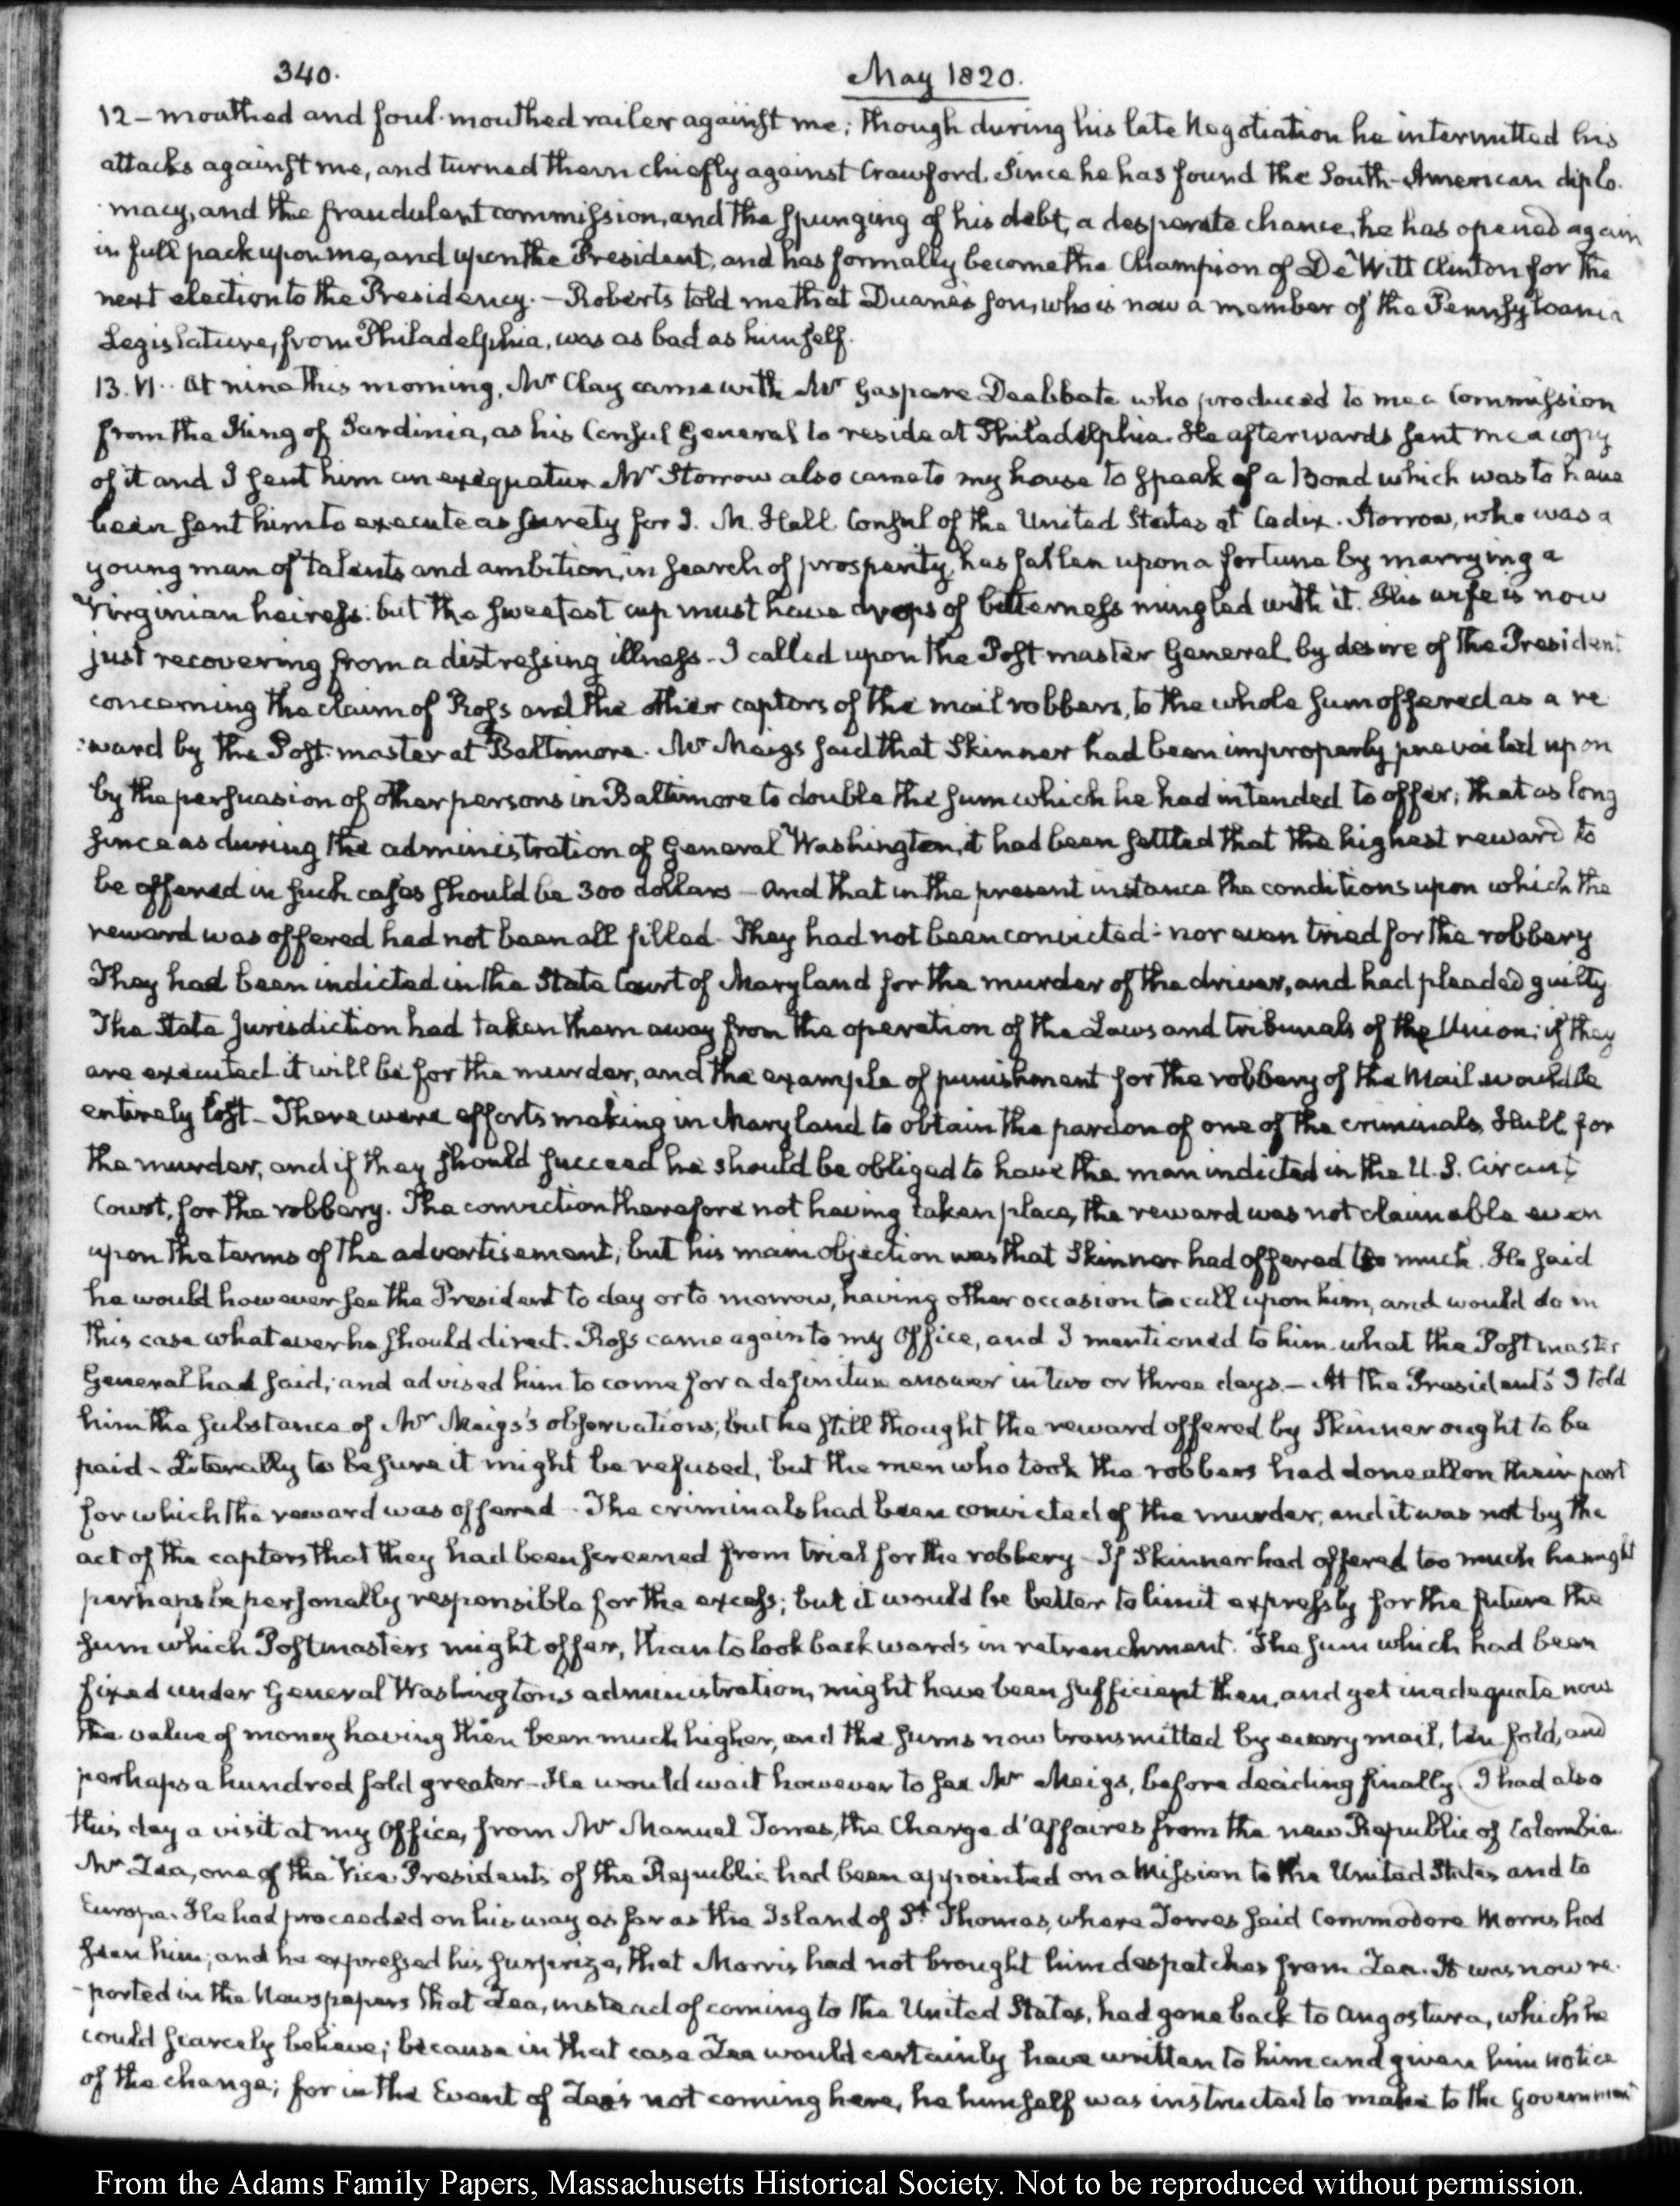 340.
May 1820.
12 – mouthed and foul-mouthed railer against me; though during his late Negotiation he intermitted his
attacks against me, and turned them chiefly against Crawford. Since he has found the South-American diplo-
macy, and the fraudulent commission, and the spunging of his debt, a desperate chance, he has opened again
in full pack upon me, and upon the President, and has formally become the Champion of De Witt Clinton for the
next election to the Presidency. – Roberts told me that Duane's son, who is now a member of the Pennsylvania
Legislature, from Philadelphia, was as bad as himself.
13. VI. At nine this morning, Mr Clay came with Mr Gaspare Deabbate who produced to me a Commission
from the King of Sardinia, as his Consul General to reside at Philadelphia. He afterwards sent me a copy
of it and I sent him an exequatur. Mr Storrow also came to my house to speak of a Bond which was to have
been sent him to execute as surety for J. M. Hall Consul of the United States at Cadix. Storrow, who was a
young man of talents and ambition, in search of prosperity, has fallen upon a fortune by marrying a
Virginian heiress: but the sweetest cup must have drops of bitterness mingled with it. His wife is now
just recovering from a distressing illness – I called upon the Post master General by desire of the President
concerning the claim of Ross and the other captors of the mail robbers, to the whole sum offered as a re-
ward by the Post-master at Baltimore. Mr Meigs said that Skinner had been improperly prevailed upon
by the persuasion of other persons in Baltimore to double the sum which he had intended to offer; that as long
since as during the administration of General Washington, it had been settled that the highest reward to
be offered in such cases should be 300 dollars – And that in the present instance the conditions upon which the
reward was offered had not been all filled. They had not been convicted - nor even tried for the robbery
They had been indicted in the State Court of Maryland for the murder of the driver, and had pleaded guilty
The State Jurisdiction had taken them away from the operation of the Laws and tribunals of the Union; if they
are executed it will be for the murder, and the example of punishment for the robbery of the Mail would be
entirely lost – There were efforts making in Maryland to obtain the pardon of one of the criminals, Hull for
the murder, and if they should succeed he should be obliged to have the man indicted in the U.S. Circuit
Court, for the robbery. The conviction therefore not having taken place, the reward was not claimable even
upon the terms of the advertisement; but his main objection was that Skinner had offered too much. He said
he would however see the President to day or to morrow, having other occasion to call upon him, and would do in
this case whatever he should direct. Ross came again to my Office, and I mentioned to him what the Post master
General had said; and advised him to come for a definitive answer in two or three days. – At the President's I told
him the substance of Mr Meigs's observations; but he still thought the reward offered by Skinner ought to be
paid – Literally to be sure it might be refused, but the men who took the robbers had done all on their part
for which the reward was offered – The criminals had been convicted of the murder, and it was not by the
act of the captors that they had been screened from trial for the robbery – If Skinner had offered too much he might
perhaps be personally responsible for the excess; but it would be better to limit expressly for the future the
sum which Postmasters might offer, than to look backwards in retrenchment. The sum which had been
fixed under General Washington's administration, might have been sufficient then, and yet inadequate now
the value of money having then been much higher, and the sums now transmitted by every mail, ten fold, and
perhaps a hundred fold greater – He would wait however to see Mr Meigs, before deciding finally. I had also
this day a visit at my Office, from Mr Manuel Torres, the Charge d'Affaires from the new Republic of Colombia.
Mr Zea, one of the Vice Presidents of the Republic had been appointed on a Mission to the United States and to
Europe. He had proceeded on his way as far as the Island of St Thomas, where Torres said Commodore Morris had
seen him; and he expressed his surprize, that Morris had not brought him despatches from Zea. It was now re-
-ported in the Newspapers that Zea, instead of coming to the United States, had gone back to Angostura, which he
could scarcely believe; because in that case Zea would certainly have written to him and given him notice
of the change; for in the Event of Zea's not coming here, he himself was instructed to make to the Government
From the Adams Family Papers, Massachusetts Historical Society. Not to be reproduced without permission.